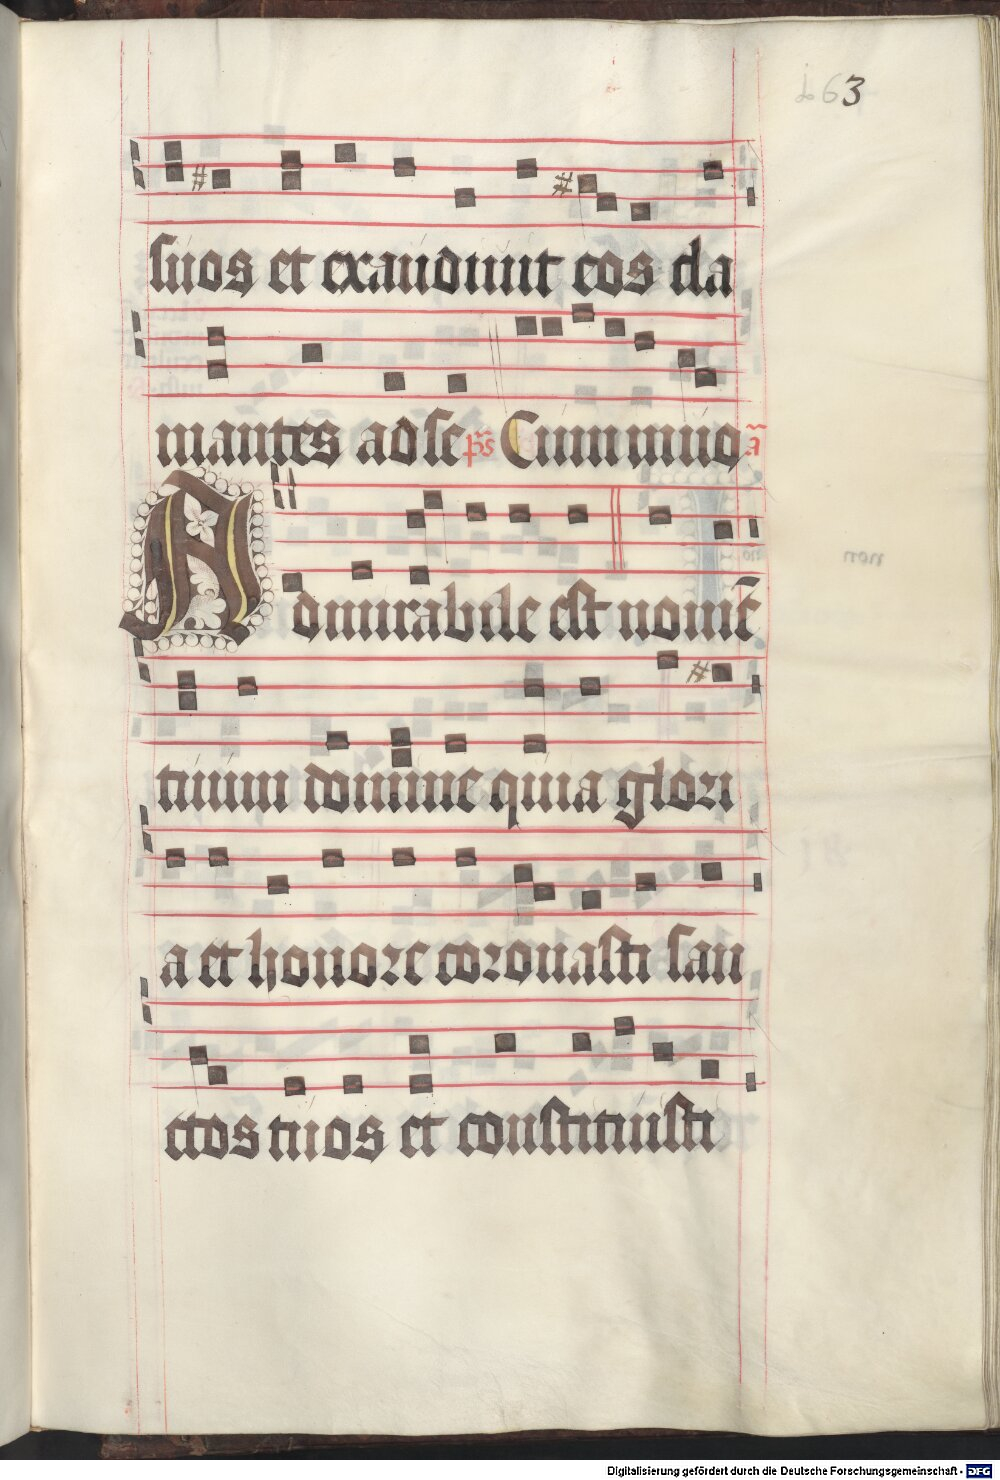 163
suos et exaudiuit eos cla
mantes ad se ps̄ Cum inuo ā
Admirabile est nomē
tuum domine quia glori
a et honore coronasti san
ctos tuos et constituisti
Digitalisierung gefördert durch die Deutsche Forschungsgemeinschaft - DFG